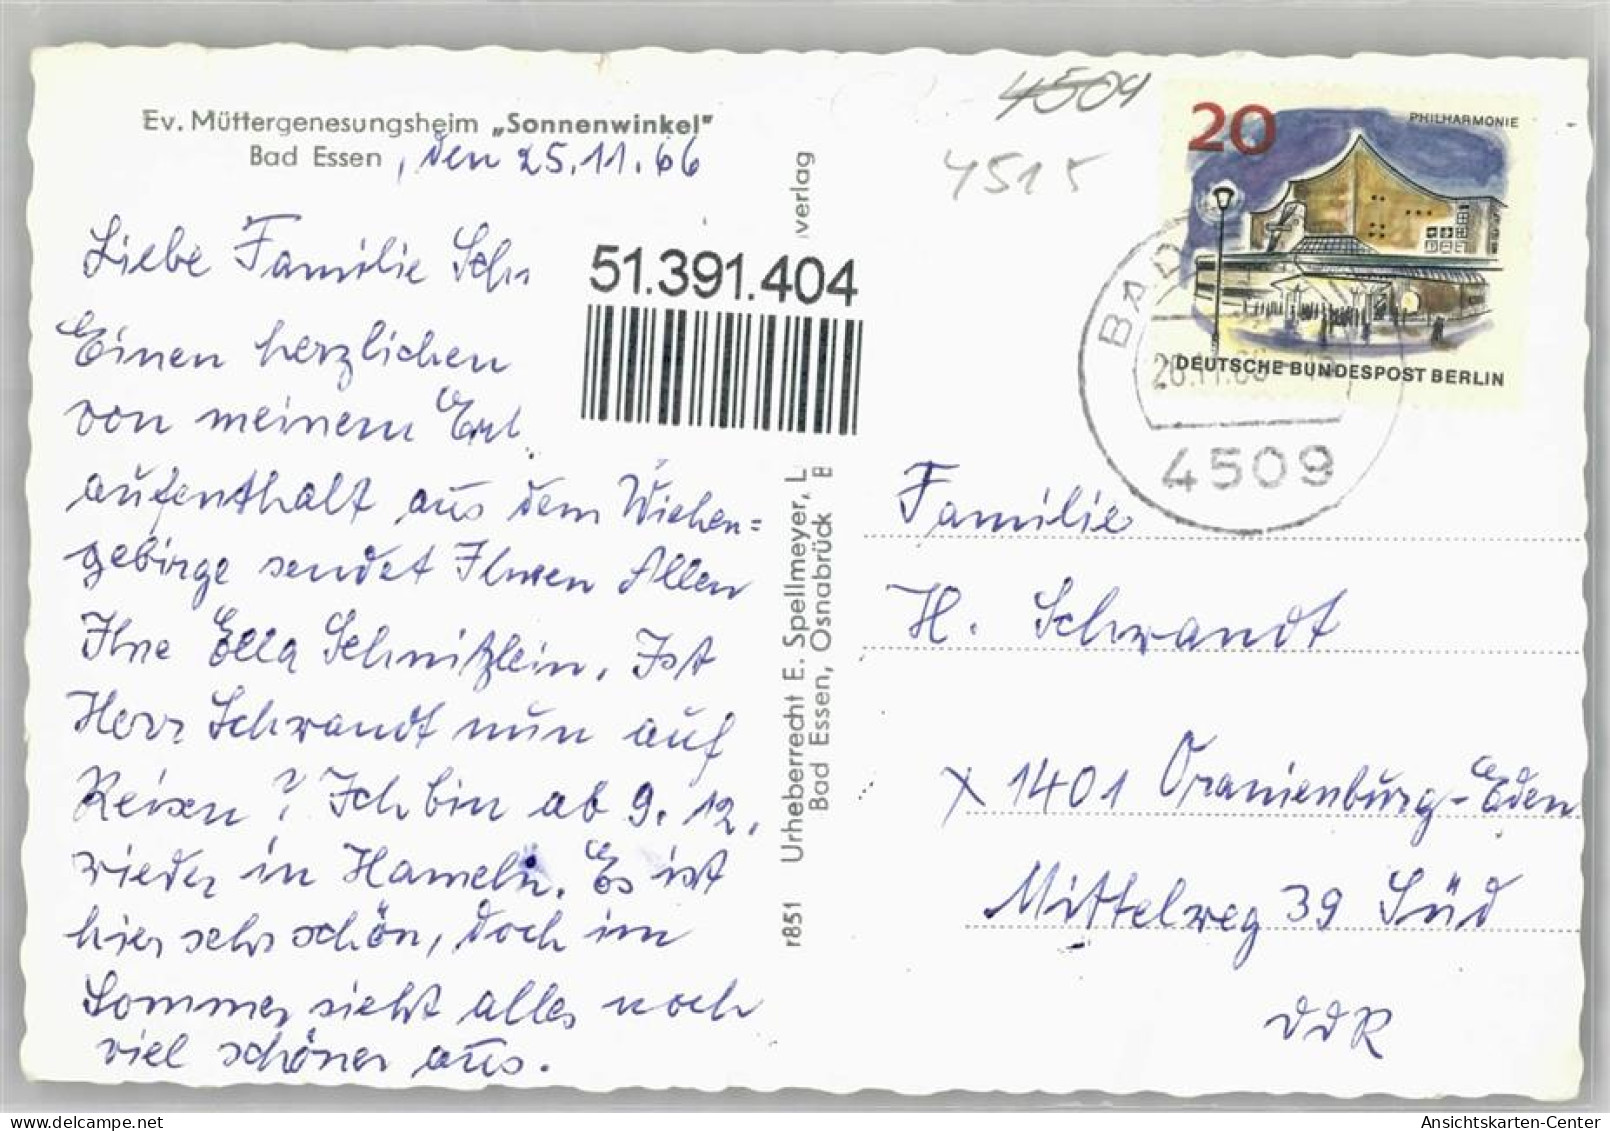 Ev. Müttergenesungsheim „Sonnenwinkel"
Bad Essen, den 25.11.66
Liebe Familie
Einen herzlichen
von meinem
aufenthalt aus dem Wiehen=
gebirge sendet Ihnen Allen
Ihre Ella Schnitzlein. Ist
Herr Schwandt nun auf
Reisen? Ich bin ab 9.12.
wieder in Hameln. Es ist
hier sehr schön, doch im
Sommer sieht alles noch
viel schöner aus.
51.391.404
verlag
Urheberrecht E. Spellmeyer, L
Bad Essen, Osnabrück
r851
4509
4515
20
PHILHARMONIE
DEUTSCHE BUNDESPOST BERLIN
BAD
4509
Familie
H. Schwandt
X 1401 Oranienburg-Eden
Mittelweg 39 Süd
DDR
Ansichtskarten-Center